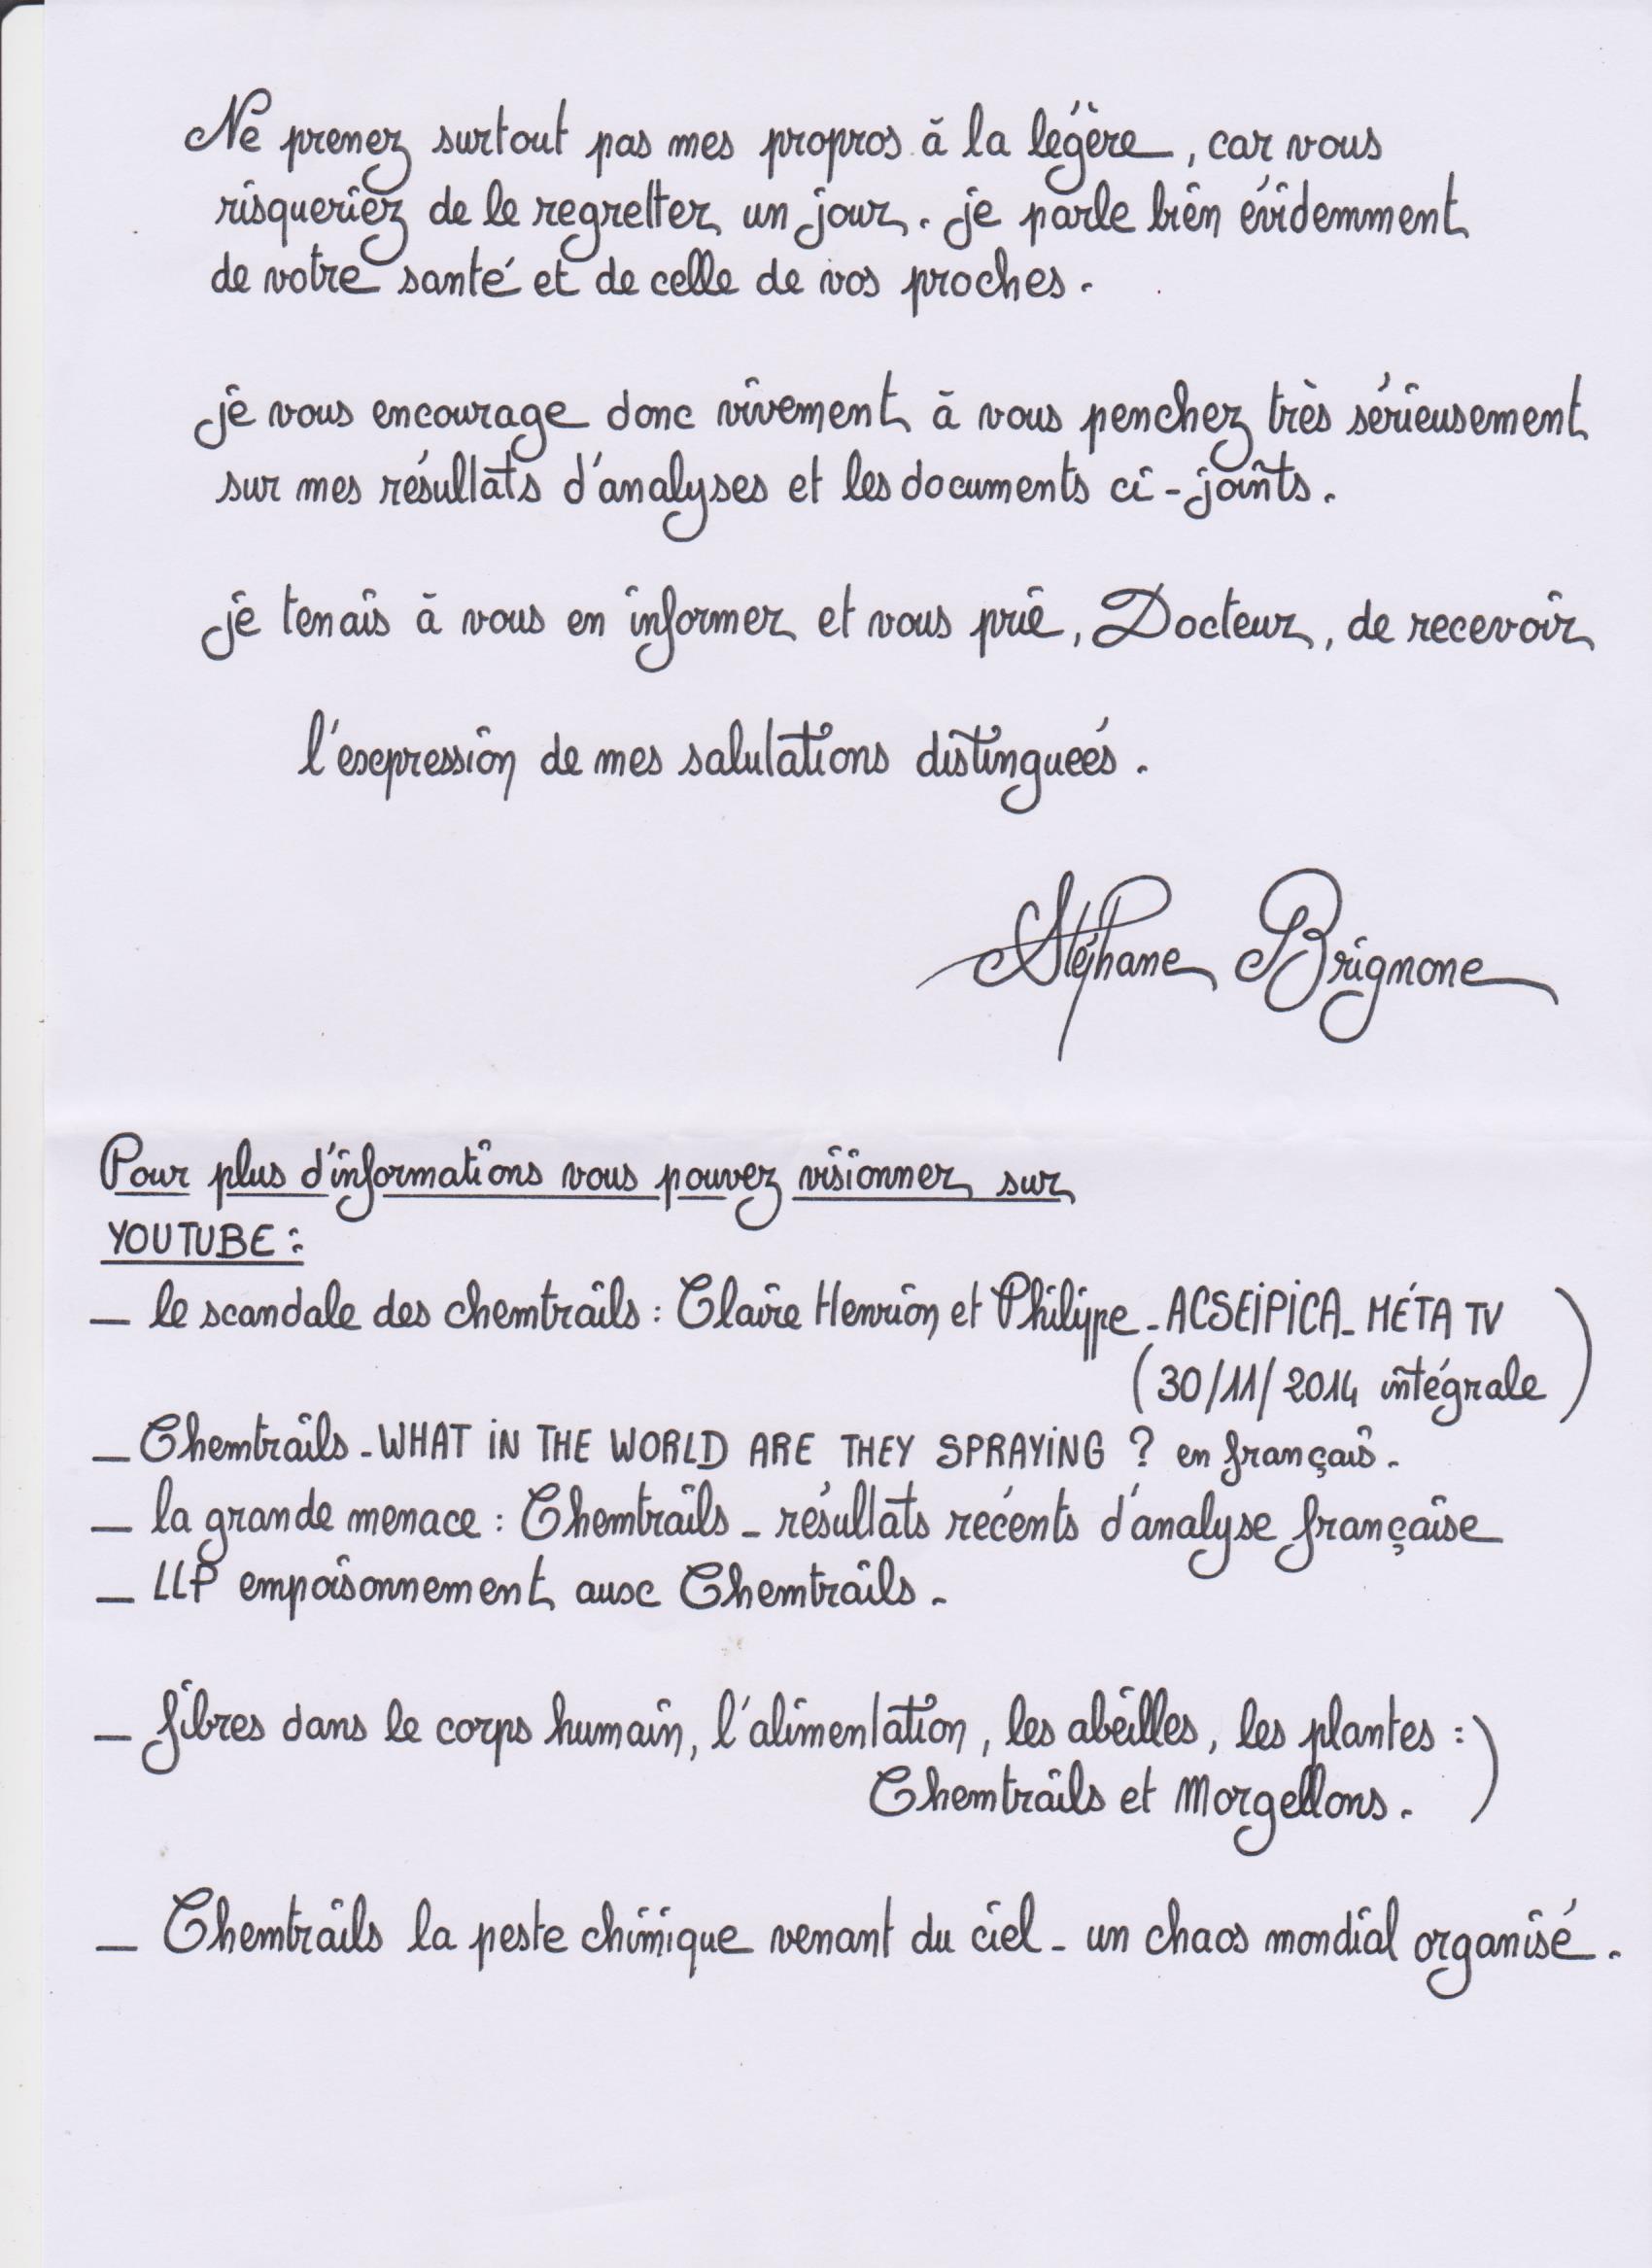 Ne prenez surtout pas mes propros à la légère, car vous
risqueriez de le regretter un jour. je parle bien évidemment
de votre santé et de celle de vos proches.
je vous encourage donc vivement à vous penchez très sérieusement
sur mes résultats d'analyses et les documents ci-joints.
je tenais à vous en informer et vous prie, Docteur, de recevoir
l'expression de mes salutations distinguées.
Stéphane Brignone
Pour plus d'informations vous pouvez visionner sur
YOUTUBE :
_ le scandale des chemtrails : Claire Henrion et Philippe - ACSEIPICA - MÉTA TV
(30/11/2014 intégrale)
_ Chemtrails - WHAT IN THE WORLD ARE THEY SPRAYING ? en français.
_ la grande menace : Chemtrails - résultats récents d'analyse française
_ LLP empoisonnement aux Chemtrails.
_ fibres dans le corps humain, l'alimentation, les abeilles, les plantes :
Chemtrails et Morgellons. )
_ Chemtrails la peste chimique venant du ciel - un chaos mondial organisé.